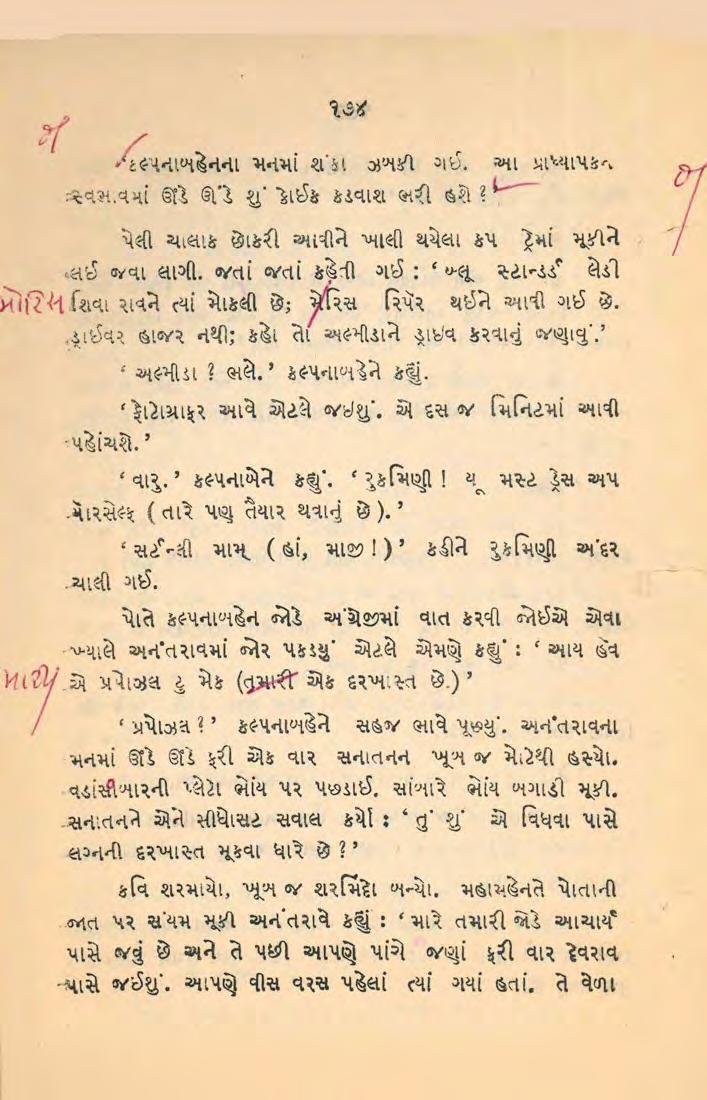 ૧૭૪
કલ્પનાબહેનના મનમાં શંકા ઝબકી ગઈ. આ પ્રાધ્યાપકના
સ્વભાવમાં ઊંડે ઊંડે શું કોઈક કડવાશ ભરી હશે ?
પેલી ચાલાક છોકરી આવીને ખાલી થયેલા કપ ટ્રેમાં મૂકીને
લઈ જવા લાગી. જતાં જતાં કહેતી ગઈ : ‘ બ્લૂ સ્ટાન્ડર્ડ લેડી
મોરિસ શિવા રાવને ત્યાં મોકલી છે; મેરિસ રિપૅર થઈને આવી ગઈ છે.
ડ્રાઈવર હાજર નથી; કહો તો અલ્મીડાને ડ્રાઇવ કરવાનું જણાવું.’
‘ અલ્મીડા ? ભલે. ’ કલ્પનાબહેને કહ્યું.
‘ ફોટોગ્રાફર આવે એટલે જઇશું. એ દસ જ મિનિટમાં આવી
પહોંચશે. ’
‘ વારુ. ’ કલ્પનાબેને કહ્યું. ‘ રુકમિણી ! યૂ મસ્ટ ડ્રેસ અપ
યૉરસેલ્ફ ( તારે પણ તૈયાર થવાનું છે ). ’
‘ સર્ટન્લી મામ્ ( હાં, માજી !)’ કહીને રુકમિણી અંદર
ચાલી ગઈ.
પોતે કલ્પનાબહેન જોડે અંગ્રેજીમાં વાત કરવી જોઈએ એવા
ખ્યાલે અનંતરાવમાં જોર પકડ્યું એટલે એમણે કહ્યું : ‘ આય હૅવ
મારી એ પ્રપોઝલ ટુ મેક (તુમારી એક દરખાસ્ત છે.) ’
‘ પ્રપોઝલ ? ’ કલ્પનાબહેને સહજ ભાવે પૂછ્યું. અનંતરાવના
મનમાં ઊંડે ઊંડે ફરી એક વાર સનાતનન ખૂબ જ મોટેથી હસ્યો.
વડાંસાંબારની પ્લેટો ભોંય પર પછડાઈ. સાંબારે ભોંય બગાડી મૂકી.
સનાતનને એને સીધોસટ સવાલ કર્યો : ‘ તું શું એ વિધવા પાસે
લગ્નની દરખાસ્ત મૂકવા ધારે છે ? ’
કવિ શરમાયો, ખૂબ જ શરમિંદો બન્યો. મહામહેનતે પોતાની
જાત પર સંયમ મૂકી અનંતરાવે કહ્યું : ‘ મારે તમારી જોડે આચાર્ય
પાસે જવું છે અને તે પછી આપણે પાંગે જણાં ફરી વાર દેવરાવ
પાસે જઈશું. આપણે વીસ વરસ પહેલાં ત્યાં ગયાં હતાં. તે વેળા